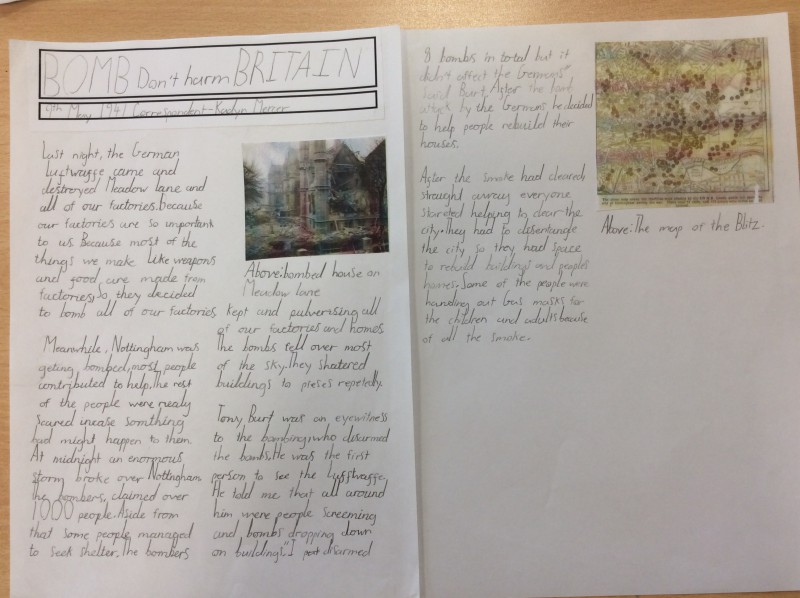 BOMB Don't harm BRITAIN
9th May 1941 Correspondent - Kaelyn Mercer
Last night, the German
Luftwagge came and
destroyed Meadow lane and
all of our factories. Because
our factories are so important
to us. Because most of the
things we make like weapons
and good are made from
factories, so they decided
to bomb all of our factories
Meanwhile, Nottingham was
geting bombed, most people
contributed to help. The rest
of the people were realy
scared incase somthing
bad might happen to them.
At midnight an enormous
storm broke over Nottingham
The bombers, claimed over
1000 people. Aside from
that some people managed
to seek shelter. The bombers
Above: bombed house on
Meadow lane
kept and pulverising all
of our factories and homes
The bombs fell over most
of the sky. They shatered
buildings to pieses repetedly.
Tony Burt was an eyewitness
to the bombing, who disarmed
the bombs. He was the first
person to see the Lufftwagge
He told me that all around
him were people screeming
and bombs dropping down
on buildings. "I disarmed
8 bombs in total but it
didn't affect the Germans"
Said Burt. After the bomb
attack by the Germans he decided
to help people rebuild their
houses.
After the smoke had cleared,
straught away everyone
started helping to clear the
city. They had to disentangle
the city so they had space
to rebuild buildings and peoples
homes. Some of the people were
handing out Gas masks for
the children and adults because
of all the smoke.
Above: The map of the Blitz.